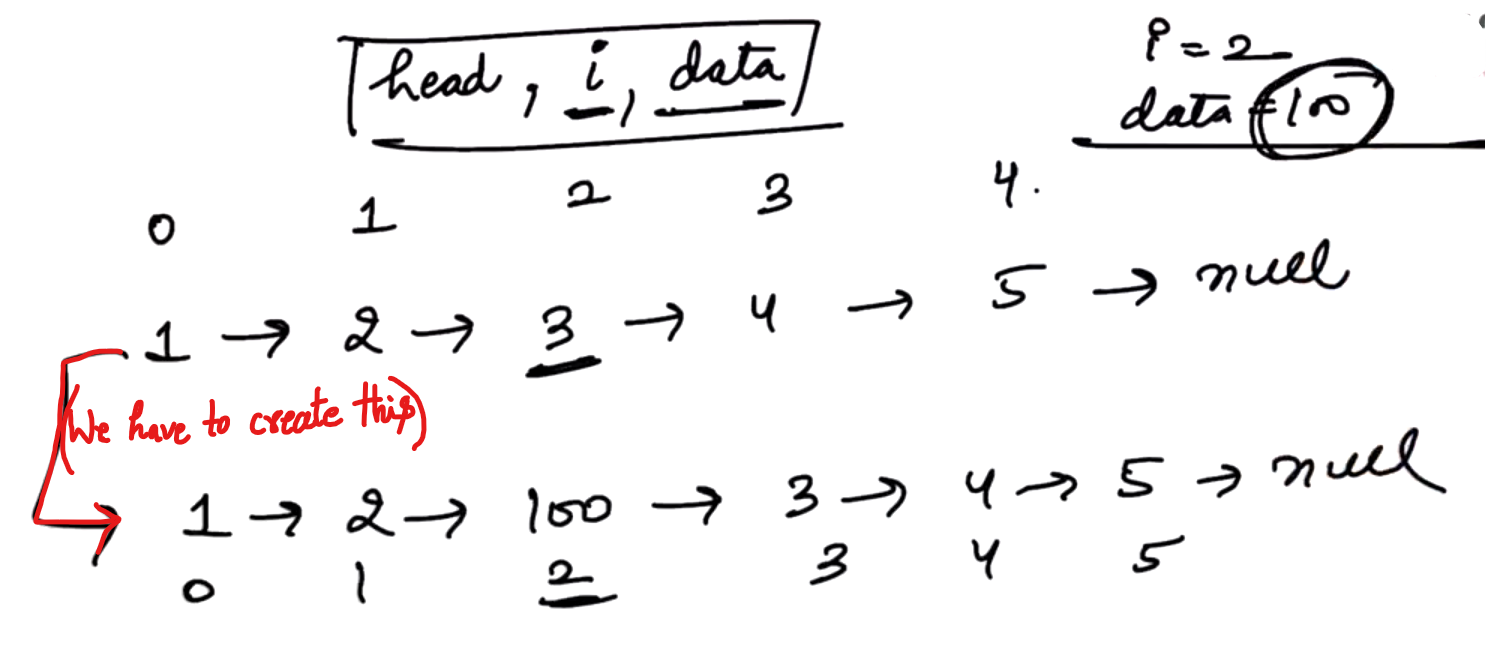 head, i, data
i = 2
data = 100
0 1 2 3 4.
1 → 2 → 3 → 4 → 5 → null
(We have to create this)
1 → 2 → 100 → 3 → 4 → 5 → null
0 1 2 3 4 5